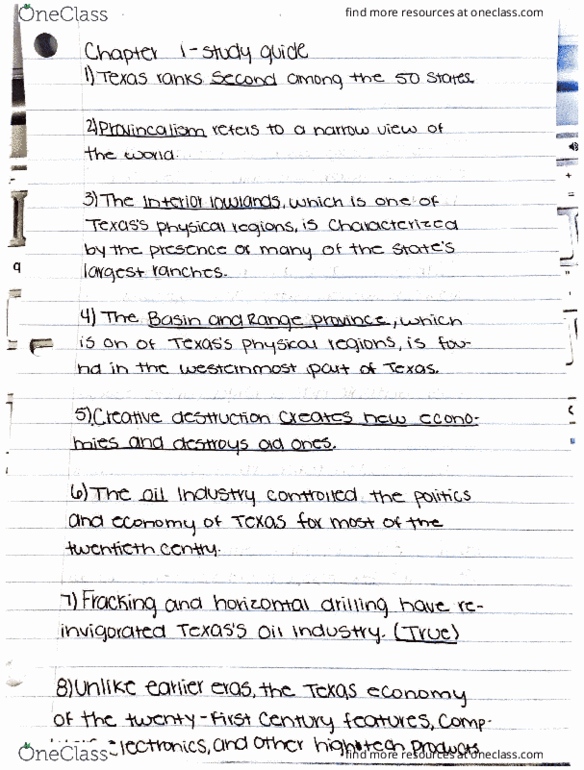 OneClass
find more resources at oneclass.com
Chapter 1-study guide
1) Texas ranks Second among the 50 states
2) Provincalism refers to a narrow view of
the world.
3) The Interior lowlands, which is one of
Texas's physical regions, is characterized
by the presence of many of the state's
largest ranches.
4) The Basin and Range province, which
is on of Texas's physical regions, is fou-
nd in the westernmost part of Texas.
5) Creative destruction creates new econo-
mies and destroys old ones.
6) The oil Industry controlled the politics
and economy of Texas for most of the
twentieth centry.
7) Fracking and horizontal drilling have re-
invigorated Texas's oil industry. (True)
8) Unlike earlier eras, the Texas economy
of the twenty-first century features, comp-
electronics, and other high-tech products
OneClass
find more resources at oneclass.com